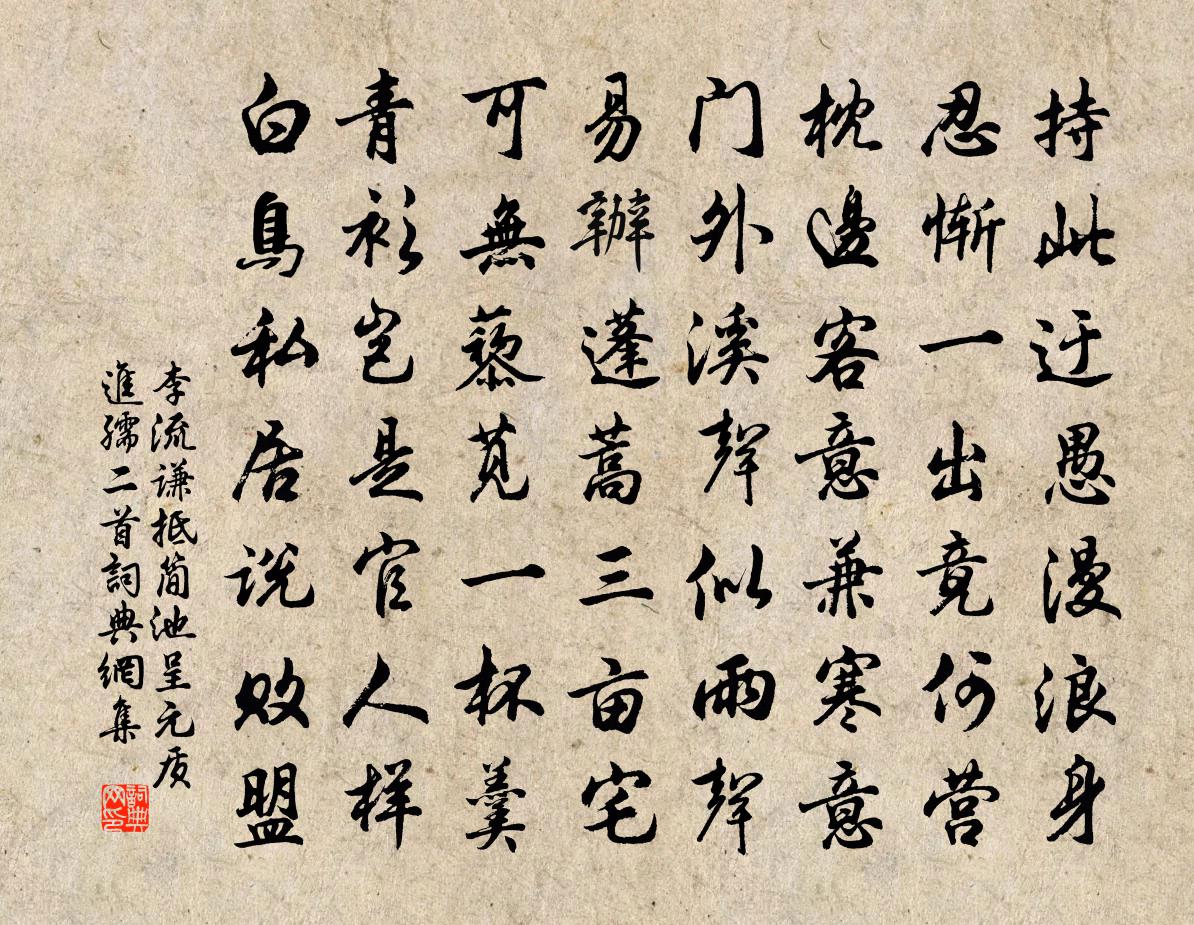 持此迂愚漫浪身
忍惭一出竟何营
枕邊客意兼寒意
门外溪聲似雨聲
易辦蓬蒿三亩宅
可無藜苋一杯羹
青衫岂是官人样
白鳥私居说败盟
李流谦抵简池呈元质
進孺二首詞典網集
詞典网印